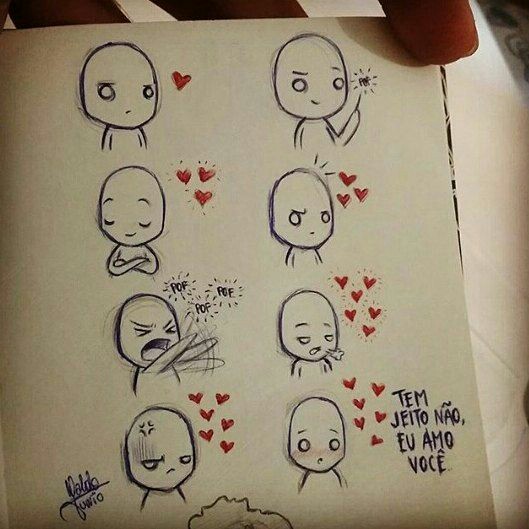 POF
POF
POF
POF
TEM
JEITO NÃO,
EU AMO
VOCÊ
Junio